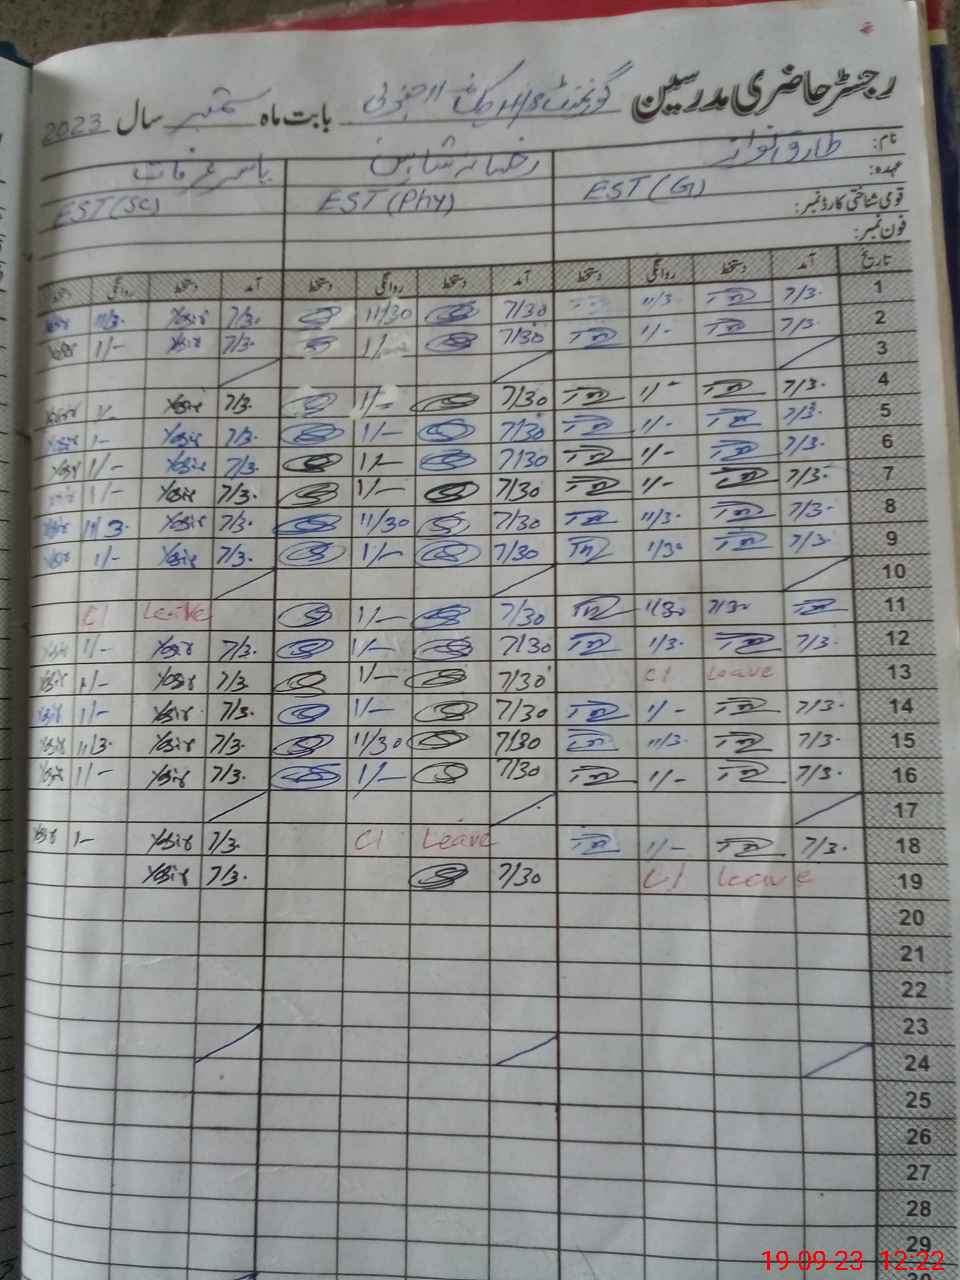 رجسٹر حاضری مدرسین گورنمنٹ بابت ماہ ستمبر سال 2023
نام: طارق نواز رخسانہ شاہین یاسر عرفات
عہدہ: EST (G) EST (Phy) EST (SC)
قومی شناختی کارڈ نمبر:
فون نمبر:
تاریخ آمد دستخط روانگی دستخط آمد دستخط روانگی دستخط آمد دستخط روانگی دستخط
1 7/3. 11/3. 7/30 11/30 7/30 Yasir 11/3. Yasir
2 7/3. 1/- 7/30 1/- 7/3. Yasir 1/- Yasir
3
4 7/3. 1/- 7/30 1/- 7/3. Yasir 1/- Yasir
5 7/3. 1/- 7/30 1/- 7/3. Yasir 1- Yasir
6 7/3. 1/- 7/30 1/- 7/3. Yasir 1/- Yasir
7 7/3. 1/- 7/30 1/- 7/3. Yasir 1/-
8 7/3. 11/3. 7/30 11/30 7/3. Yasir 11/3. Yasir
9 7/3. 11/30 7/30 1/- 7/3. Yasir 1/- Yasir
10
11 7/30 11/30 7/30 1/- Leave Cl
12 7/3. 11/3. 7/30 1/- 7/3. Yasir 1/- Yasir
13 Leave Cl 7/30 1/- 7/3. Yasir 1/- Yasir
14 7/3. 1/- 7/30 1/- 7/3. Yasir 1/- Yasir
15 7/3. 11/3. 7/30 11/30 7/3. Yasir 11/3. Yasir
16 7/3. 1/- 7/30 1/- 7/3. Yasir 1/- Yasir
17
18 7/3. 1/- Leave Cl 7/3. Yasir 1- Yasir
19 Leave Cl 7/30 7/3. Yasir
20
21
22
23
24
25
26
27
28
29
19-09-23 12:22